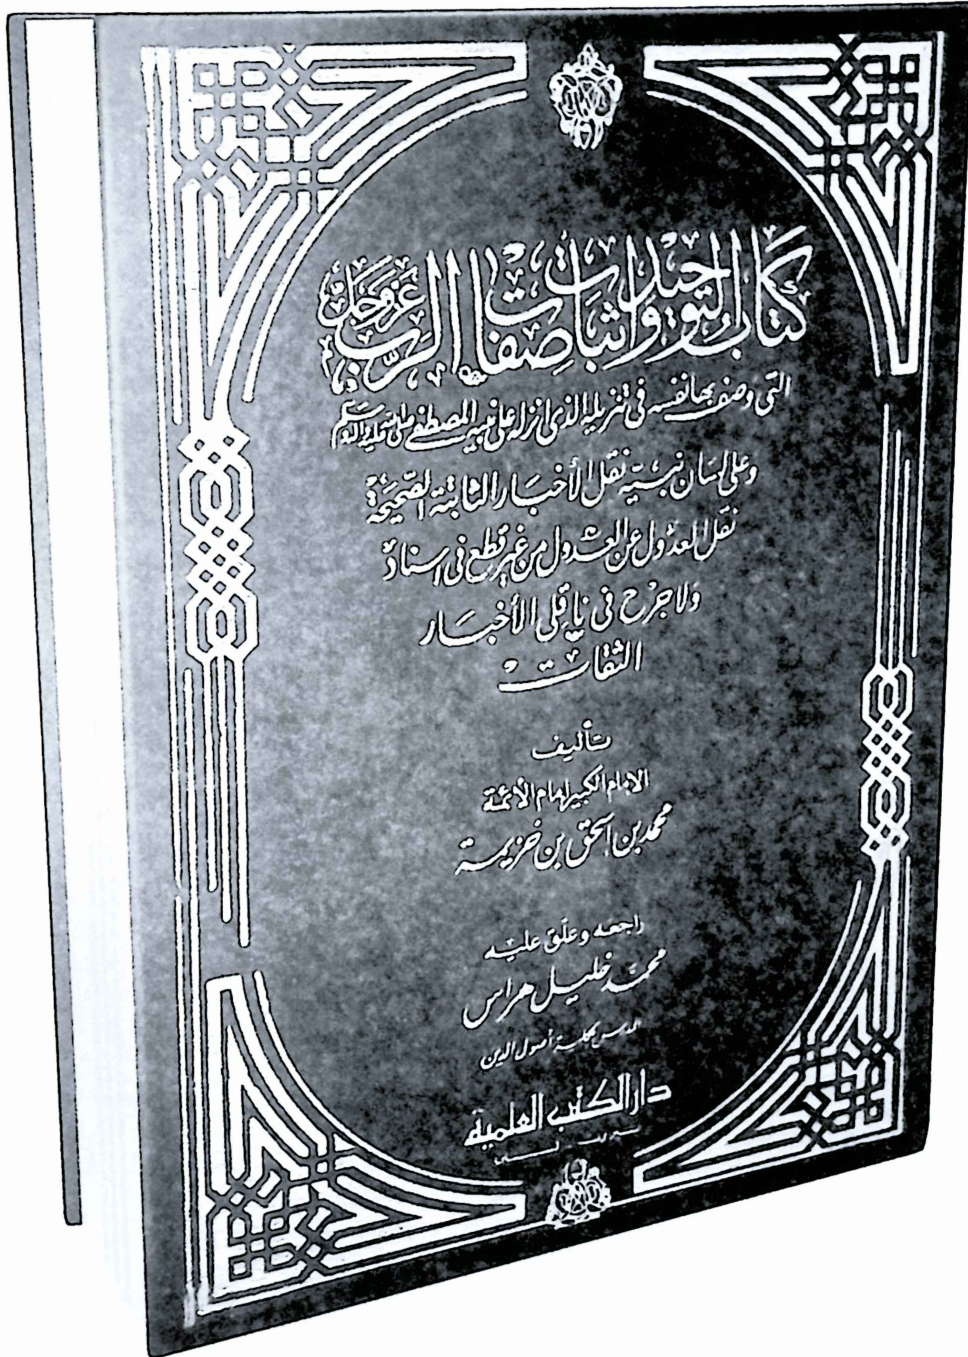 كتاب التوحيد وإثبات صفات الرب عز وجل
التي وصف بها نفسه في تنزيله الذي انزله على نبيه المصطفى صلى الله عليه وسلم
وعلى لسان نبيه نقل الأخبار الثابتة الصحيحة
نقل العدول عن العدول من غير قطع في اسناد
ولا جرح في ناقلي الأخبار
الثقات
تأليف
الامام الكبير امام الأئمة
محمد بن اسحق بن خزيمة
راجعه وعلق عليه
محمد خليل هراس
المدرس بكلية أصول الدين
دار الكتب العلمية
بيروت لبنان